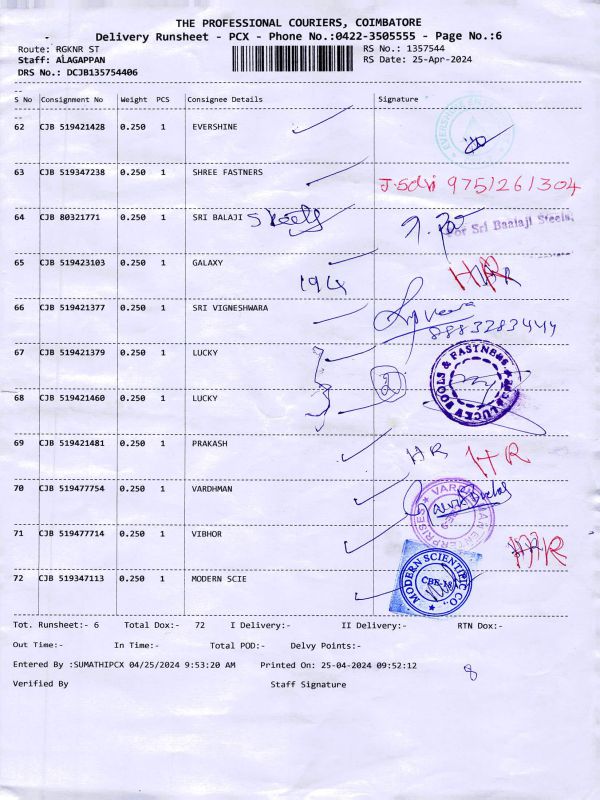 THE PROFESSIONAL COURIERS, COIMBATORE
Delivery Runsheet - PCX - Phone No.:0422-3505555 - Page No.:6
Route: RGKNR ST RS No.: 1357544
Staff: ALAGAPPAN RS Date: 25-Apr-2024
DRS No.: DCJB135754406
S No Consignment No Weight PCS Consignee Details Signature
62 CJB 519421428 0.250 1 EVERSHINE
63 CJB 519347238 0.250 1 SHREE FASTNERS
9751261304
64 CJB 80321771 0.250 1 SRI BALAJI Steels
For Sri Baalaji Steels.
65 CJB 519423103 0.250 1 GALAXY HR
194
66 CJB 519421377 0.250 1 SRI VIGNESHWARA
8883283444
67 CJB 519421379 0.250 1 LUCKY
LUCKY TOOLS & FASTNERS
2
68 CJB 519421460 0.250 1 LUCKY
69 CJB 519421481 0.250 1 PRAKASH HR HR
70 CJB 519477754 0.250 1 VARDHMAN
VARDHMAN ENTERPRISES
71 CJB 519477714 0.250 1 VIBHOR HR
72 CJB 519347113 0.250 1 MODERN SCIE
MODERN SCIENTIFIC CO.,
CBE-18
Tot. Runsheet:- 6 Total Dox:- 72 I Delivery:- II Delivery:- RTN Dox:-
Out Time:- In Time:- Total POD:- Delvy Points:-
Entered By :SUMATHIPCX 04/25/2024 9:53:20 AM Printed On: 25-04-2024 09:52:12
8
Verified By Staff Signature